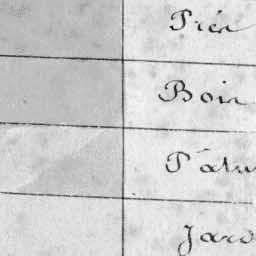 Prés
Bois
Pâtu
Jard